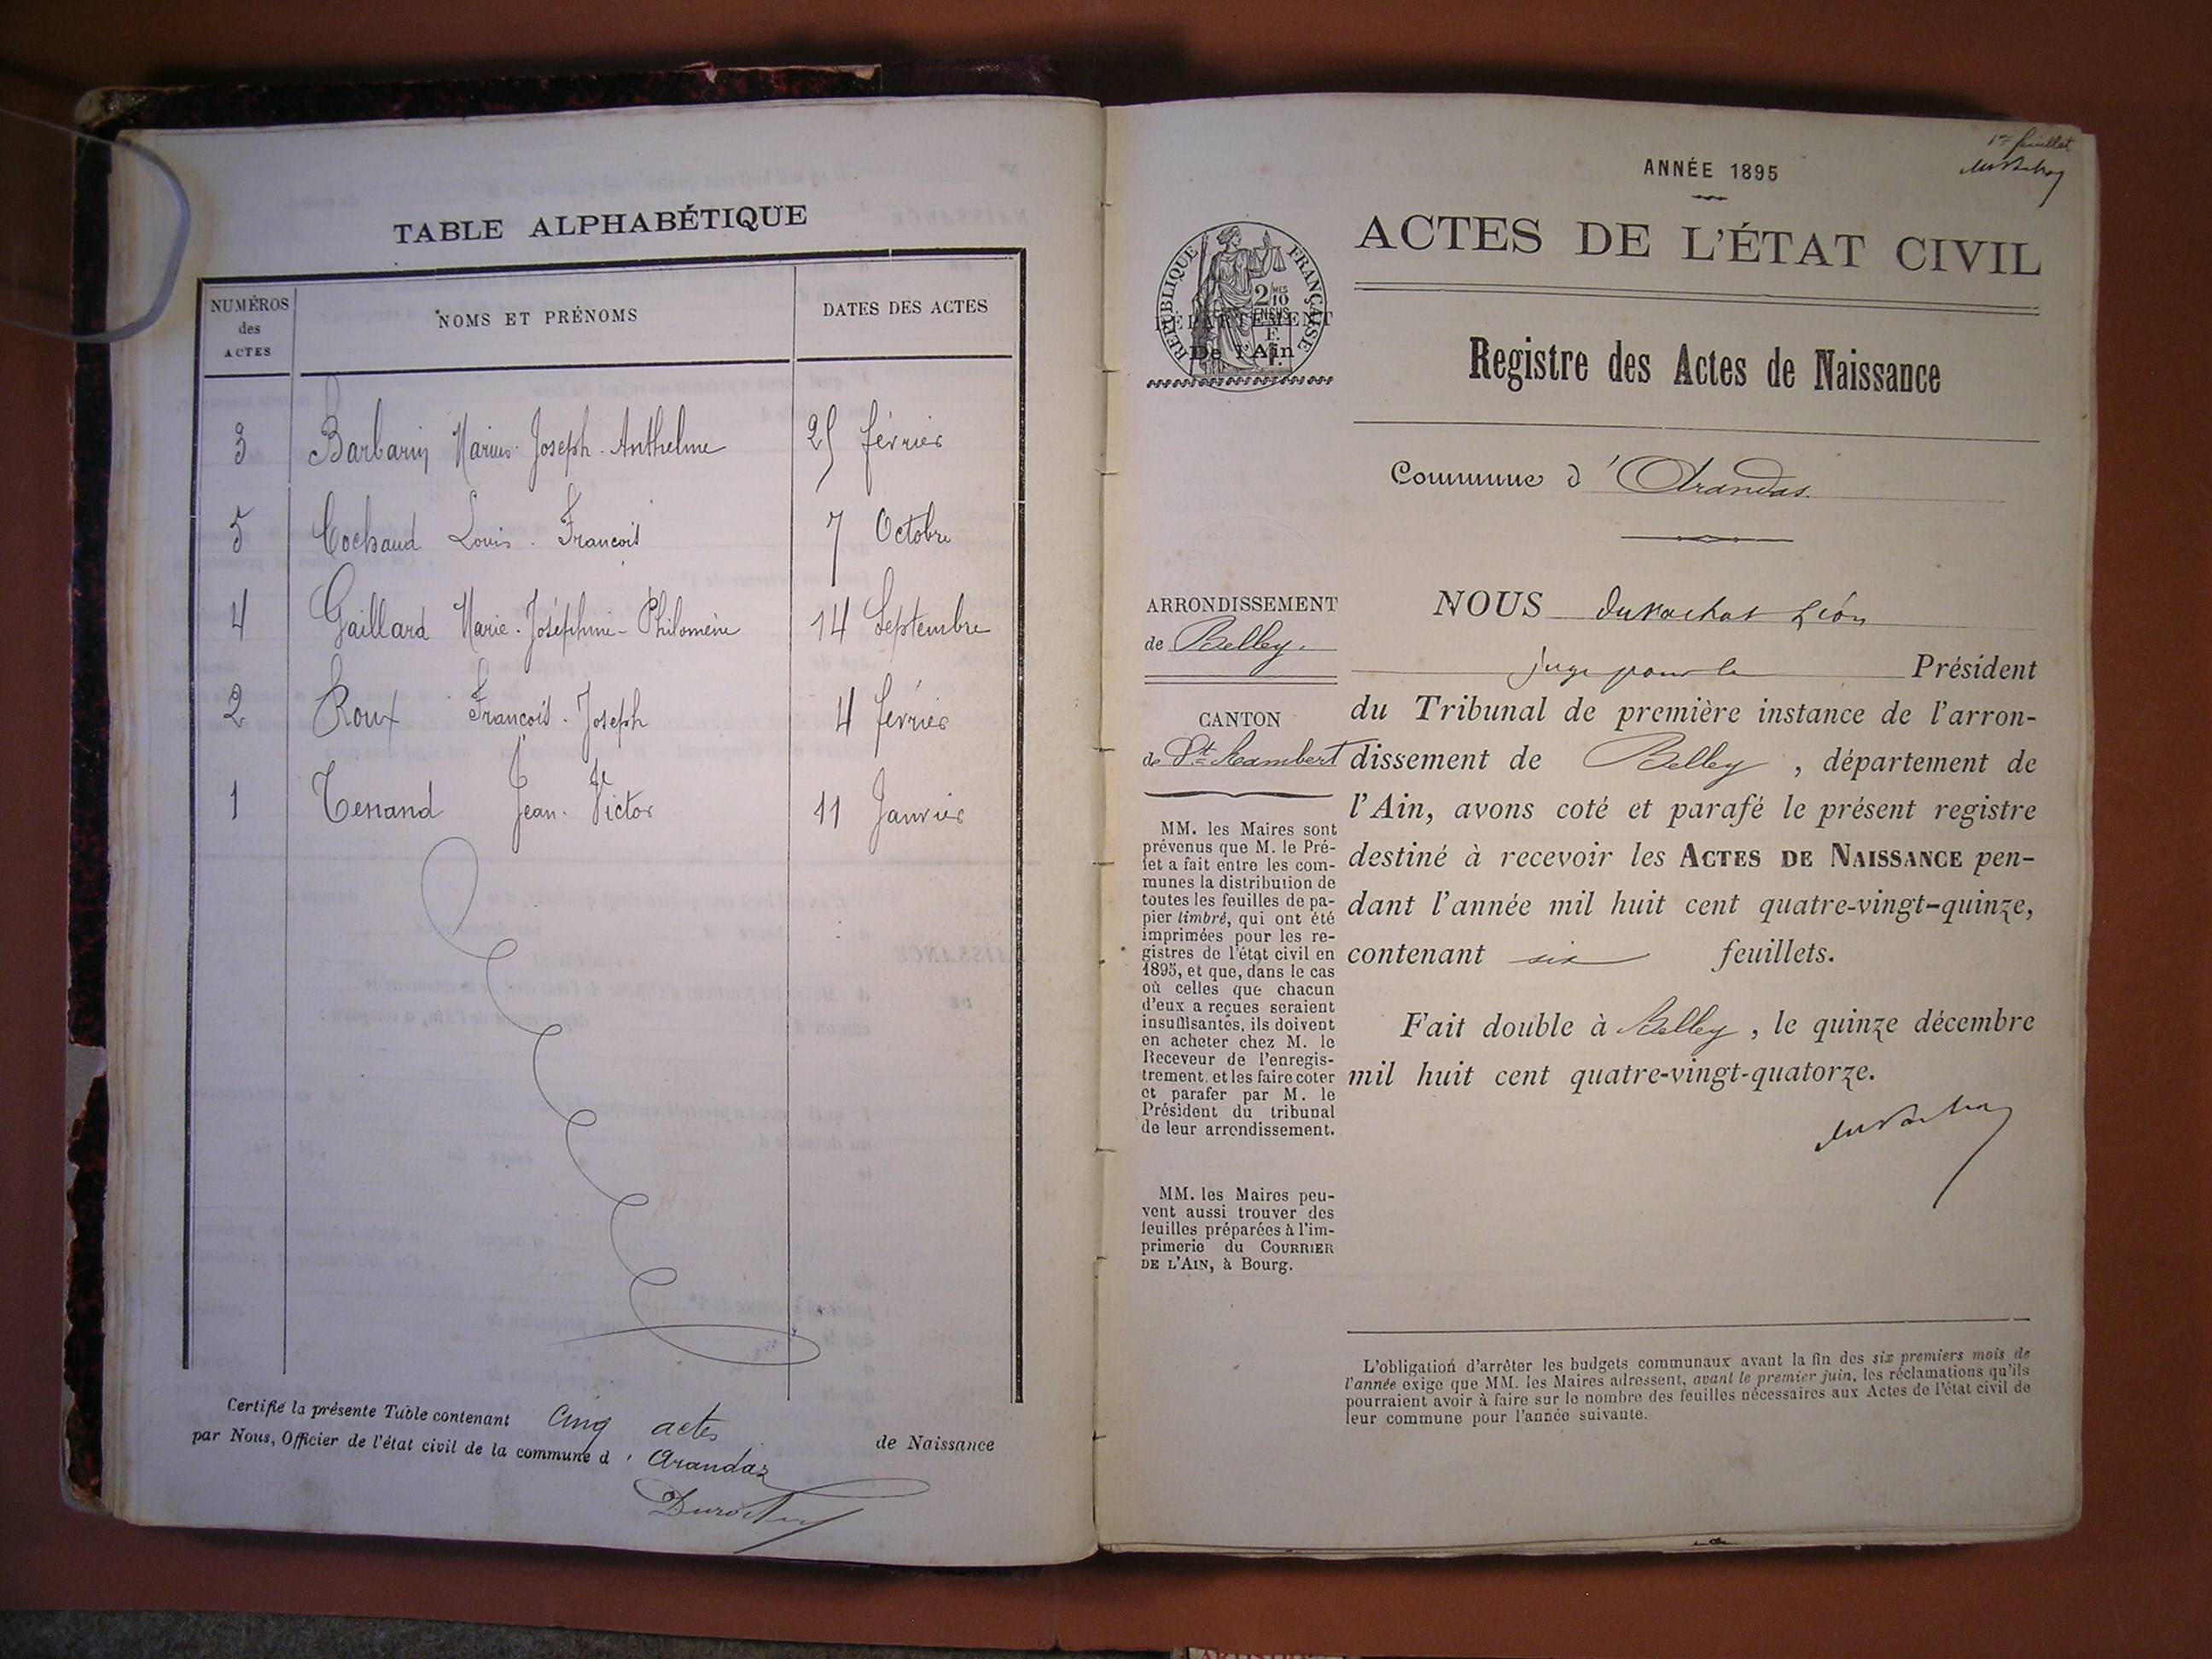 TABLE ALPHABÉTIQUE
NUMÉROS
des
ACTES
NOMS ET PRÉNOMS
DATES DES ACTES
3 Barbarin Marius Joseph-Anthelme 25 février
5 Cochaud Louis-François 7 Octobre
4 Gaillard Marie-Joséphine-Philomène 14 Septembre
2 Roux François-Joseph 4 février
1 Tenand Jean-Victor 11 Janvier
Certifié la présente Table contenant Cinq actes de Naissance
par Nous, Officier de l'état civil de la commune d'Arandas
1er feuillet
ANNÉE 1895
ACTES DE L'ÉTAT CIVIL
RÉPUBLIQUE FRANÇAISE
2/10
MES
EN SUS
DÉPARTEMENT
De l'Ain
Registre des Actes de Naissance
Commune d'Arandas
ARRONDISSEMENT
de Belley.
CANTON
de St Rambert
MM. les Maires sont
prévenus que M. le Pré-
fet a fait entre les com-
munes la distribution de
toutes les feuilles de pa-
pier timbré, qui ont été
imprimées pour les re-
gistres de l'état civil en
1895, et que, dans le cas
où celles que chacun
d'eux a reçues seraient
insuffisantes, ils doivent
en acheter chez M. le
Receveur de l'enregis-
trement, et les faire coter
et parafer par M. le
Président du tribunal
de leur arrondissement.
MM. les Maires peu-
vent aussi trouver des
feuilles préparées à l'im-
primerie du COURRIER
DE L'AIN, à Bourg.
NOUS Durochat Léon
juge pour le Président
du Tribunal de première instance de l'arron-
dissement de Belley, département de
l'Ain, avons coté et parafé le présent registre
destiné à recevoir les ACTES DE NAISSANCE pen-
dant l'année mil huit cent quatre-vingt-quinze,
contenant six feuillets.
Fait double à Belley, le quinze décembre
mil huit cent quatre-vingt-quatorze.
L'obligation d'arrêter les budgets communaux avant la fin des six premiers mois de
l'année exige que MM. les Maires adressent, avant le premier juin, les réclamations qu'ils
pourraient avoir à faire sur le nombre des feuilles nécessaires aux Actes de l'état civil de
leur commune pour l'année suivante.